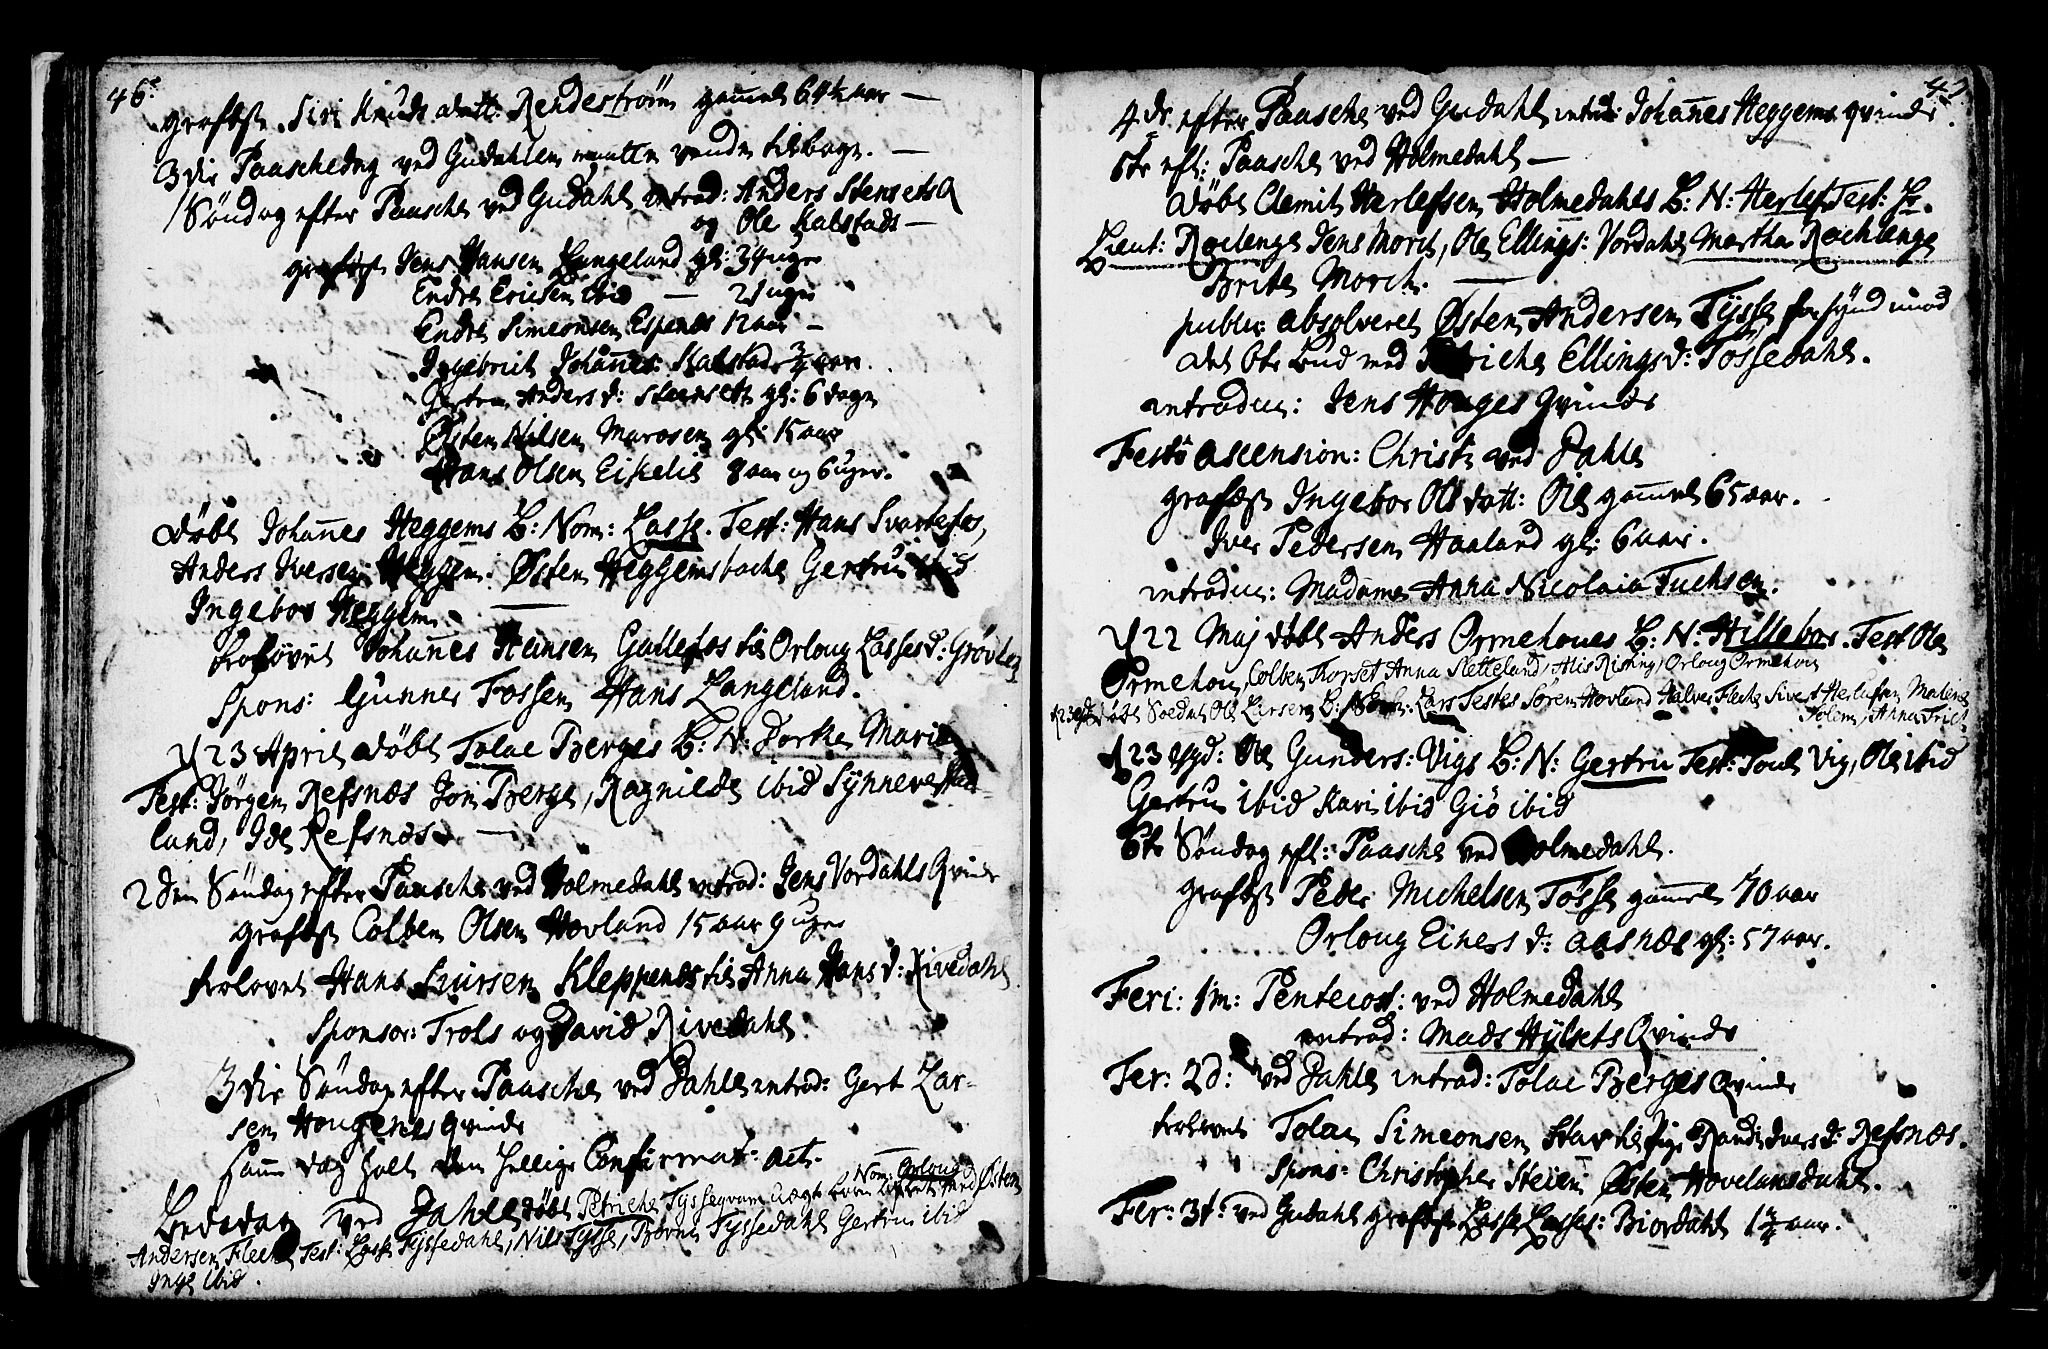 46.
grafæst Siri Knuds datt: Rendestrøm gam̄el 64½ aar —
3die Paaschedag ved Gudahlen maatte vende tilbage. —
1 Søndag efter Paasche ved Gudahl introd: Anders Stensets Q
og Ole Kalstads —
grafæst Jens Hansen Langeland gl: 34 uger
Endre Ericsen ibid — 21 uger
Endre Simeonsen Espenæs 12 aar —
Ingebrict Johan̄es: Kalstad ¾ aar.
Gertru Anders d: Steensett gl: 6 dage
Østen Nilsen Marøsen gl: 15 aar
Hans Olsen Eikelie 8 aar og 6 uger.
døbt Johan̄es Heggems B: Nom: Lasse. Test: Hans Svartefos,
Anders Iversen Heggem: Østen Heggemsbache Gertru ibid
Ingebor Heggem. —
trolovet Johan̄es Hansen Gullefos til Orloug Lasses d: Grøvlen
Spons: Gunner Fossen Hans Langeland.
d 23 April døbt Tolae Berges B: N: Dorthe Marie
Test: Jørgen Refsnæs Jon Berge, Ragnilde ibid Synneve
land, Ide Refsnæs. —
2den Søndag efter Paasche ved Holmedahl introd: Jens Vordahls Qvinde
grafæst Colben Olsen Hovland 15 aar 9 uger
trolovet Hans Laursen Kleppenæs til Anna Hans d: Rivedahl
Sponsor: Trols og David Rivedahl.
3die Søndag efter Paasche ved Dahle introd: Gert Lar-
sen Hougenes qvinde
sam̄e dag holt den hellige Confirmat: act. —
Nom: Orloug
Bededag ved Dahle døbt Petriche Tysseqvam uægte barn avlet med Østen
Andersen Fleche Test: Lasse Tyssedahl, Nils Tysse, Brønel Tyssedahl Gertru ibid
Inge ibid.
47.
4de efter Paasche ved Gudahl introd: Johan̄es Heggems qvinde.
5te eft: Paasche ved Holmedahl —
døbt Clemit Herlefsen Holmedahls B: N: Herlef. Test: Hr.
Lieut: Roelenge Jens Morch, Ole Ellings: Vordahl Martha Rochlenge
Brite Morch. —
public absolveret Østen Andersen Tysse for synd imod
det 6te bud med Petriche Ellings d: Tossedahl.
introduc: Jens Houges Qvinde
Festo ascension: Christi ved Dahle
grafæst Ingebor Ols datt: Ole gam̄el 65 aar.
Iver Pedersen Haaland gl: 6 aar.
introduc: Madame Anna Nicolaia Fuchsen.
d 22 Maj døbt Anders Ormehoues B: N: Hillebor. Test Ole
Ormehou, Colben Thorset Anna Sletteland, Alis Rising, Orloug Ormehou
d 23 døbt Soldat Ole Larsens B: Nom: Lars Testes Søren Hovland Halver Fleche Sivert Herlufsen Malene
Holem, Anna
d 23 Ejd: Ole Gunders: Vigs B: N: Gertru Test: Poul Vig, Ole ibid
Gertru ibid Kari ibid Giø ibid
6te Søndag eft: Paasche ved Holmedahl.
grafæst Peder Michelsen Tosse gam̄el 70 aar
Orloug Einers d: aasnæs gl: 57 aar.
Feri: 1m: Pentecost: ved Holmedahl
introd: Mads Hylsets Qvinde
Fer: 2d: ved Dahle introd: Tolae Berges qvinde
trolovet Tolae Simeonsen Stav til pige Randi Ivers d: Refsnæs.
Spons: Christopher Steien Østen Hovelansdahl.
Fer: 3t: ved Gudahl grafæst Lasse Lasses: Biordahl 1¼ aar.